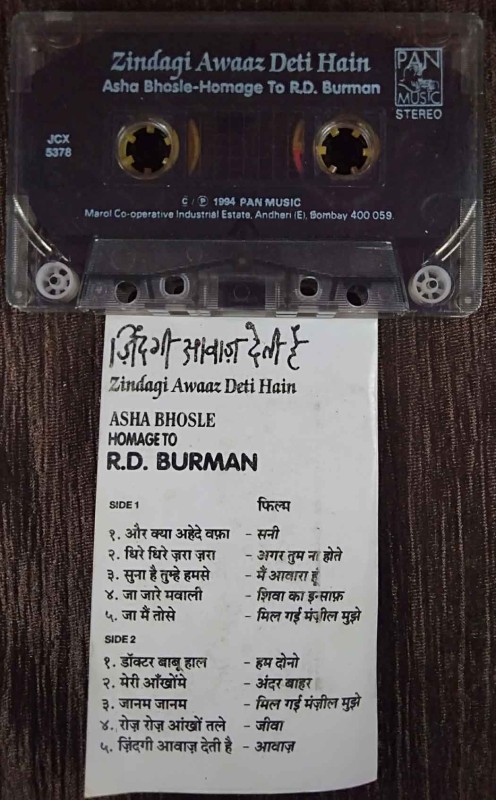 Zindagi Awaaz Deti Hain
Asha Bhosle-Homage To R.D. Burman
PAN
MUSIC
STEREO
JCX
5378
C / P 1994 PAN MUSIC
Marol Co-operative Industrial Estate, Andheri (E), Bombay 400 059.
ज़िंदगी आवाज़ देती है
Zindagi Awaaz Deti Hain
ASHA BHOSLE
HOMAGE TO
R.D. BURMAN
SIDE 1 फिल्म
१. और क्या अहेदे वफ़ा - सनी
२. धिरे धिरे ज़रा ज़रा - अगर तुम ना होते
३. सुना है तुम्हे हमसे - मैं आवारा हूं
४. जा जारे मवाली - शिवा का इन्साफ़
५. जा मैं तोसे - मिल गई मंज़ील मुझे
SIDE 2
१. डॉक्टर बाबू हाल - हम दोनो
२. मेरी आँखोंमे - अंदर बाहर
३. जानम जानम - मिल गई मंज़ील मुझे
४. रोज़ रोज़ आंखों तले - जीवा
५. ज़िंदगी आवाज़ देती है - आवाज़